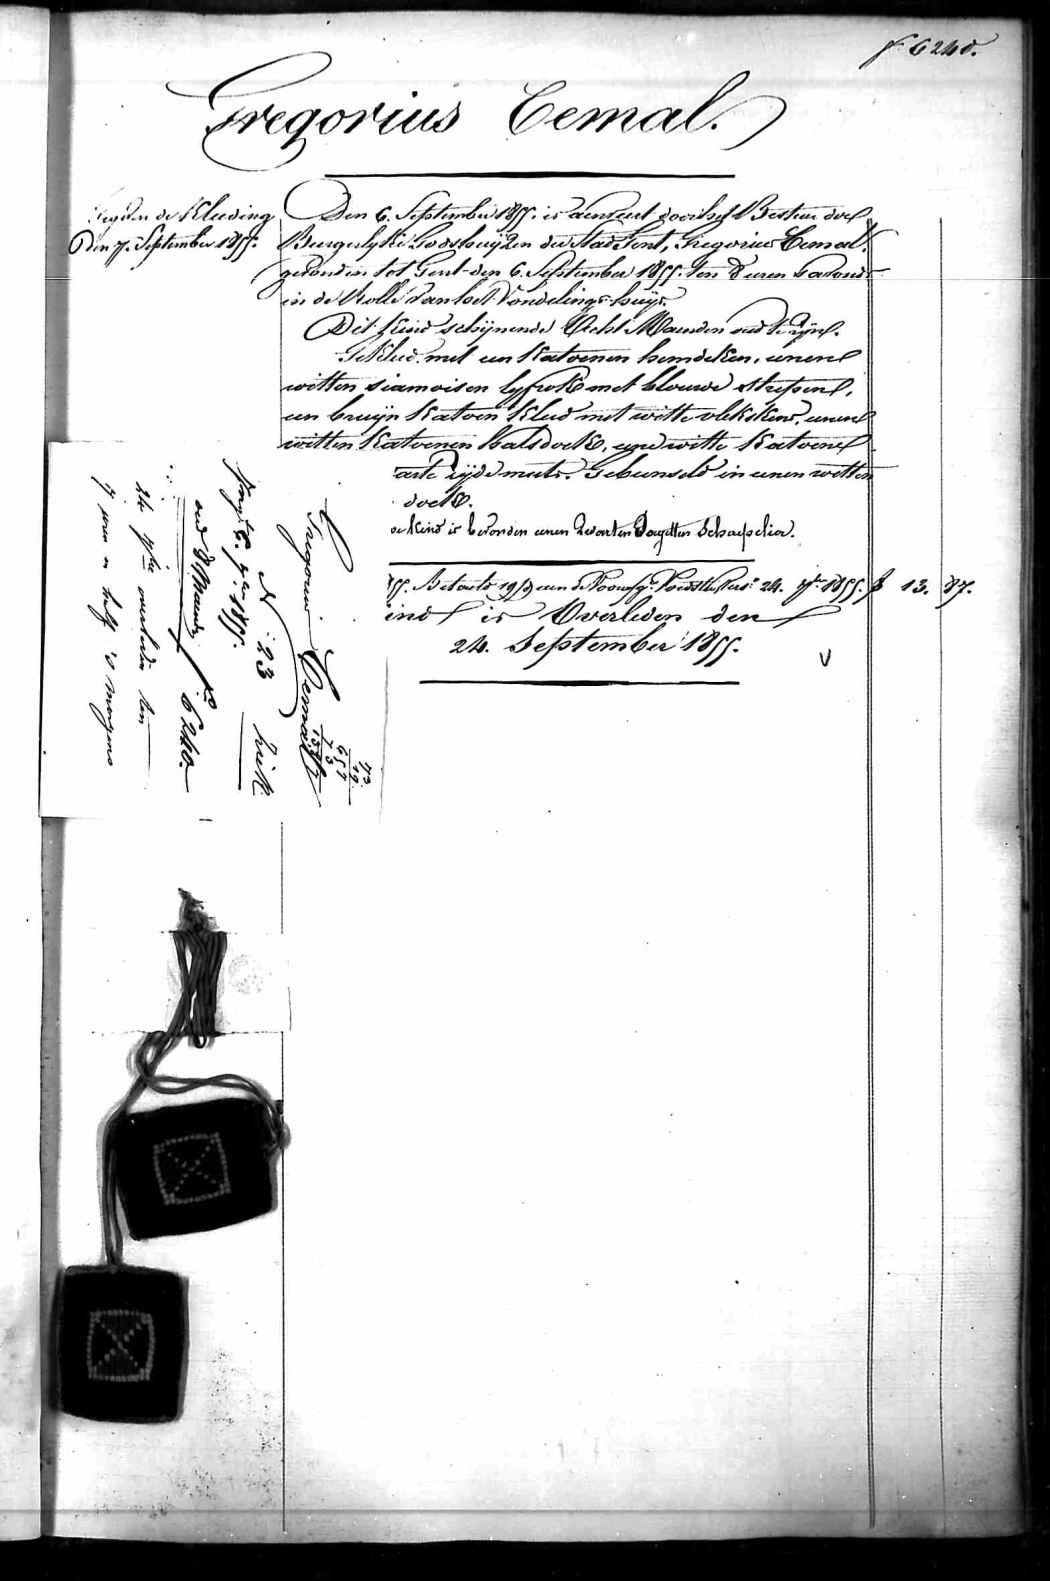 f. 6240.
Gregorius Cemal.
de Kleeding
Den 7. September 1855.
Den 6. September 1855. is aenveert door het Bestier der
Burgerlyke Godshuyzen der Stad Gent, Gregorius Cemal.
gevonden tot Gent den 6. September 1855. ten 8 uren 's avonds
in de Rolle van het Vondelings-huys.
Dit kind schynende Acht Maenden oud te zyn.
Gekleed met een Katoenen hemdeken, eenen
witten siamoisen lyfrok met blauwe strepen,
een bruyn Katoen Kleed met witte vlekskens, eenen
witten Katoenen halsdoek, eene witte Katoene
zyde muts. Gebunseld in eenen witten
doek.
Kind is bevonden eenen Zwarten Schapelier.
55. Betaeld 24. 7bre 1855. f 13. 87.
ind is Overleden den
24. September 1855.
Gregorius Cemal
N 23
1855.
oud 8 Maenden
f° 6240.
24 7bre overleden ten
7 uren en half 's morgens